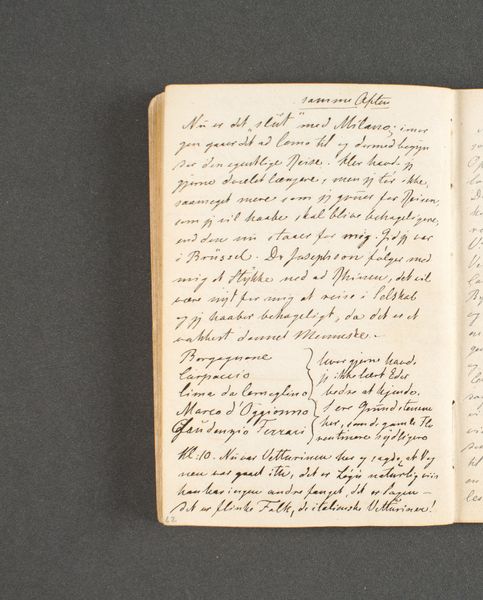 samme Aften
Nu er det "slut" med Milano; imor
gen gaaer det ad Como til og dermed begyn
der den egentlige Reise. Her havde jeg
gjerne dvælet længere, men jeg tør ikke,
saameget mere som jeg gruer for Reisen,
som jeg vil haabe skal blive behageligere,
end den nu staaer for mig. Gid jeg var
i Brüssel. Dr Josephson følger med
mig et Stykke ned ad Rhinen, det vil
være nyt for mig at reise i Selskab
og jeg haaber behageligt, da det er et
vakkert dannet Menneske.-
Borgognone
Carpaccio
Cima da Conegliano
Marco d'Oggionno
Gaudenzio Ferrari
hvor gjerne havde
jeg ikke lært Eder
bedre at kjende.
I ere Grundstenene
her, som de gamle Flo
rentinere
Kl: 10. Nu var Vetturinen her og sagde, at Vog
nen var gaaet itu, det er Løgn naturligviis
han har ingen andre fanget, det er Sagen -
det er flinke Folk, de italienske Vetturiner!